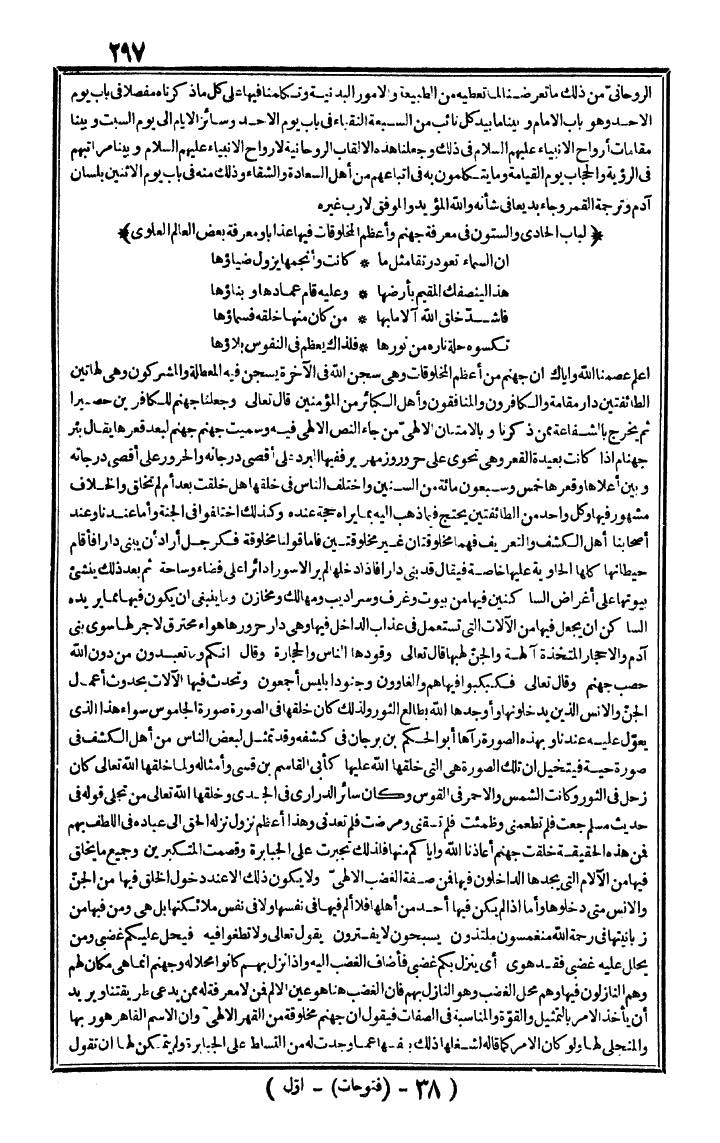 ٢٩٧
الروحانيّ من ذلك ما تعرضنا لما تعطيه من الطبيعة والامور البدنية وتكلمنا فيها على كل ما ذكرناه مفصلا فى باب يوم
الاحد وهو باب الامام و بينا ما بيد كل نائب من السبعة النقباء فى باب يوم الاحد وسائر الايام الى يوم السبت و بينا
مقامات أرواح الانبياء عليهم السلام فى ذلك وجعلنا هذه الالقاب الروحانية لارواح الانبياء عليهم السلام و بينا مراتبهم
فى الرؤية والحجاب يوم القيامة وما يتكلمون به فى اتباعهم من أهل السعادة والشقاء وذلك منه فى باب يوم الاثنين بلسان
آدم وترجة القمر وجاء بديعا فى شأنه والله المؤيد والموفق لارب غيره
﴿ لباب الحادى والستون فى معرفة جهنم وأعظم المخلوقات فيها عذابا ومعرفة بعض العالم العلوى ﴾
ان السماء تعود رتقا مثل ما * كانت وأنجمها يزول ضياؤها
هذا لينصفك المقيم بأرضها * وعليه قام عمادها و بناؤها
فاشدّ خلق الله آلاما بها * من كان منها خلقه فسماؤها
تكسوه حلة ناره من نورها * فلذاك يعظم فى النفوس بلاؤها
اعلم عصمنا الله واياك ان جهنم من أعظم المخلوقات وهى سجن الله فى الآخرة يسجن فيه المعطلة والمشركون وهى لهاتين
الطائفتين دار مقامة والكافرون والمنافقون وأهل الكبائر من المؤمنين قال تعالى وجعلنا جهنم للكافرين حصيرا
ثم يخرج بالشفاعة ممن ذكرنا و بالامتنان الالهىّ من جاء النص الالهى فيه وسميت جهنم جهنم لبعد قعرها يقال بئر
جهنام اذا كانت بعيدة القعر وهى تحوى على حرور وزمهرير ففيها البرد على أقصى درجاته والحرور على أقصى درجاته
و بين أعلاها وقعرها خمس وسبعون مائة من السنين واختلف الناس فى خلقها هل خلقت بعد أم لم تخلق والخلاف
مشهور فيها وكل واحد من الطائفتين يحتج فيما ذهب اليه بما يراه حجة عنده وكذلك اختلفوا فى الجنة وأما عندنا وعند
أصحابنا أهل الكشف والتعريف فهما مخلوقتان غير مخلوقتين فاما قولنا مخلوقة فكرجل أراد أن يبنى دارا فأقام
حيطانها كلها الحاوية عليها خاصة فيقال قد بنى دارا فاذا دخلها لم ير الاسورا دائرا على فضاء وساحة ثم بعد ذلك ينشئ
بيوتها على أغراض الساكنين فيها من بيوت وغرف وسراديب ومهالك ومخازن وما ينبغى ان يكون فيها مما يريده
الساكن ان يجعل فيها من الآلات التى تستعمل فى عذاب الداخل فيها وهى دار حرورها هواء محترق لا جمر لها سوى بنى
آدم والاحجار المتخذة آلهة والجنّ لهبها قال تعالى وقودها الناس والحجارة وقال انكم وما تعبدون من دون الله
حصب جهنم وقال تعالى فكبكبوا فيها هم والغاوون وجنود ابليس أجمعون وتحدث فيها الآلات بحدوث أعمال
الجنّ والانس الذين يدخلونها وأوجدها الله بطالع الثور ولذلك كان خلقها فى الصورة صورة الجاموس سواء هذا الذى
يعوّل عليه عندنا و بهذه الصورة رآها أبو الحكم بن برجان فى كشفه وقد تمثل لبعض الناس من أهل الكشف فى
صورة حية فيتخيل ان تلك الصورة هى التى خلقها الله عليها كأبى القاسم بن قسى وأمثاله ولما خلقها الله تعالى كان
زحل فى الثور وكانت الشمس والاحمر فى القوس وكان سائر الدرارى فى الجدى وخلقها الله تعالى من تجلى قوله فى
حديث مسلم جعت فلم تطعمنى وظمئت فلم تسقنى ومرضت فلم تعدنى وهذا أعظم نزول نزله الحق الى عباده فى اللطف بهم
فمن هذه الحقيقة خلقت جهنم أعاذنا الله واياكم منها فلذلك تجبرت على الجبابرة وقصمت المتكبرين وجميع ما يخلق
فيها من الآلام التى يجدها الداخلون فيها فمن صفة الغضب الالهىّ ولا يكون ذلك الا عند دخول الخلق فيها من الجنّ
والانس متى دخلوها وأما اذا لم يكن فيها أحد من أهلها فلا ألم فيها فى نفسها ولا فى نفس ملائكتها بل هى ومن فيها من
زبانيتها فى رحمة الله منغمسون ملتذون يسبحون لا يفترون يقول تعالى ولا تطغوا فيه فيحل عليكم غضبى ومن
يحلل عليه غضبى فقد هوى أى ينزل بكم غضبى فأضاف الغضب اليه واذا نزل بهم كانوا محلا له وجهنم انما هى مكان لهم
وهم النازلون فيها وهم محل الغضب وهو النازل بهم فان الغضب هنا هو عين الالم فمن لا معرفة له ممن يدعى طريقتنا ويريد
أن يأخذ الامر بالتمثيل والقوّة والمناسبة فى الصفات فيقول ان جهنم مخلوقة من القهر الالهىّ وان الاسم القاهر هو ربها
والمتجلى لها ولو كان الامر كما قاله لشغلها ذلك بنفسها عما وجدت له من التسلط على الجبابرة ولم يتمكن لها ان تقول
( ٣٨ - (فتوحات) - اول )